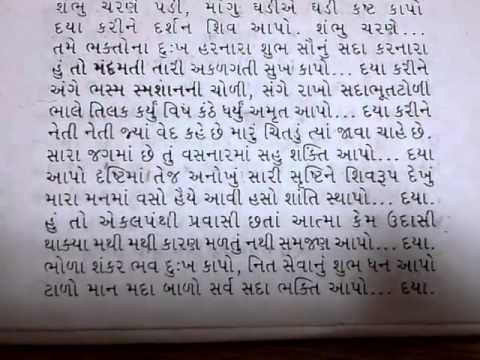 શંભુ ચરણે પડી, માંગુ ઘડીએ ઘડી કષ્ટ કાપો
દયા કરીને દર્શન શિવ આપો. શંભુ ચરણે...
તમે ભક્તોના દુઃખ હરનારા શુભ સૌનું સદા કરનારા
હું તો મંદમતી તારી અકળગતી સુખ કાપો... દયા કરીને
અંગે ભસ્મ સ્મશાનની ચોળી, સંગે રાખો સદાભૂતટોળી
ભાલે તિલક કર્યું વિષ કંઠે ધર્યું અમૃત આપો... દયા કરીને
નેતી નેતી જ્યાં વેદ કહે છે મારું ચિતડું ત્યાં જાવા ચાહે છે.
સારા જગમાં છે તું વસનારમાં સહુ શક્તિ આપો... દયા
આપો દષ્ટિમાં તેજ અનોખું સારી સૃષ્ટિને શિવરૂપ દેખું
મારા મનમાં વસો હૈયે આવી હસો શાંતિ સ્થાપો... દયા.
હું તો એકલપંથી પ્રવાસી છતાં આત્મા કેમ ઉદાસી
થાક્યા મથી મથી કારણ મળતું નથી સમજણ આપો... દયા.
ભોળા શંકર ભવ દુઃખ કાપો, નિત સેવાનું શુભ ધન આપો
ટાળો માન મદા બાળો સર્વ સદા ભક્તિ આપો... દયા.